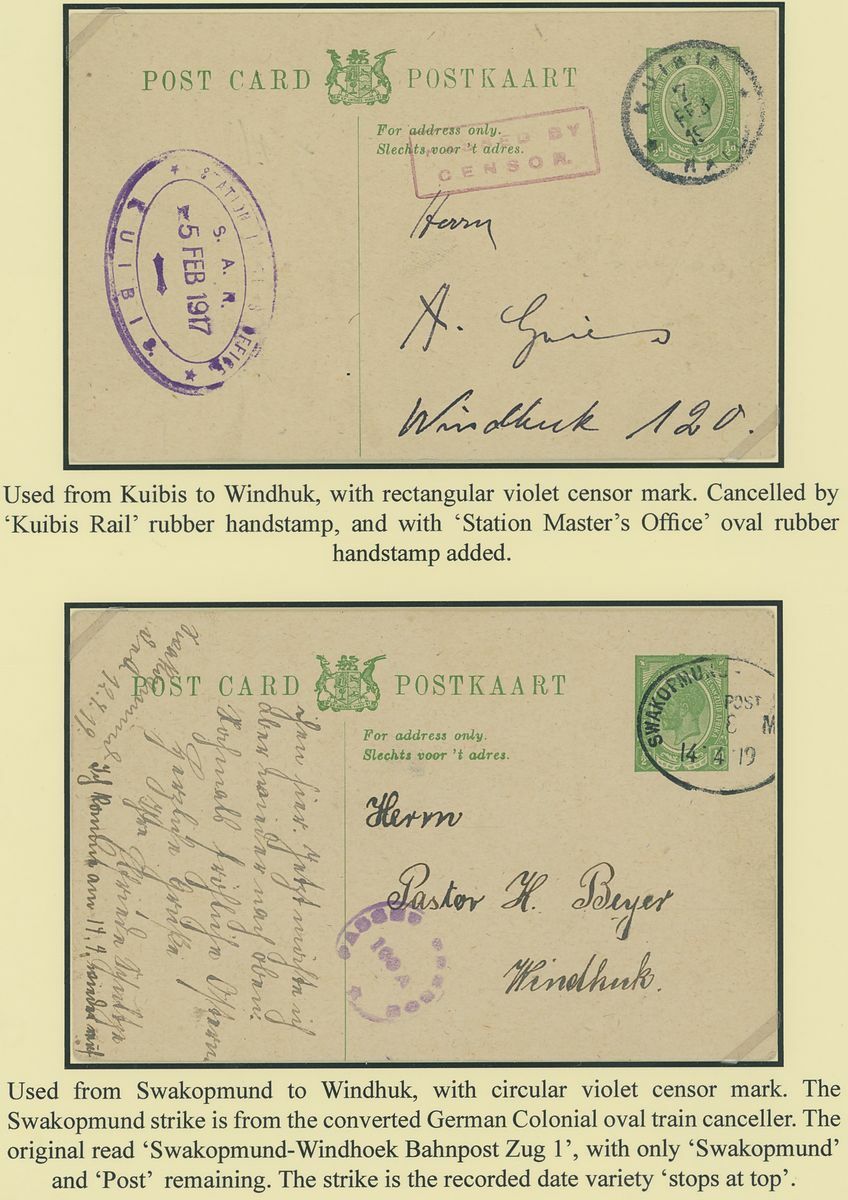 POST CARD POSTKAART
For address only.
Slechts voor 't adres.
BY
CENSOR.
KUIBIS
7
FEB
½d
STATION OFFICE
S. A. R.
5 FEB 1917
KUIBIS
Herrn
A.
Windhuk 120.
Used from Kuibis to Windhuk, with rectangular violet censor mark. Cancelled by
‘Kuibis Rail’ rubber handstamp, and with ‘Station Master’s Office’ oval rubber
handstamp added.
POST CARD POSTKAART
For address only.
Slechts voor 't adres.
SWAKOPMUND
POST
14 4 19
Herrn
Pastor H. Beyer
Windhuk.
PASSED CENSOR
A
hier. Jetzt möchte ich
aber wieder nach oben.
Nochmals fröhliche Ostern
herzliche Grüße
Ihre
Swakopmund
Used from Swakopmund to Windhuk, with circular violet censor mark. The
Swakopmund strike is from the converted German Colonial oval train canceller. The
original read ‘Swakopmund-Windhoek Bahnpost Zug 1’, with only ‘Swakopmund’
and ‘Post’ remaining. The strike is the recorded date variety ‘stops at top’.